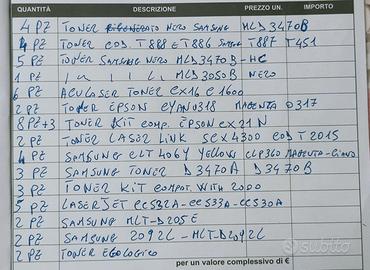 QUANTITÀ DESCRIZIONE PREZZO UN. IMPORTO
4 PZ TONER NERO SAMSUNG MLD3470B
4 PZ TONER COD. T888 E T886 T887 T451
5 PZ TONER SAMSUNG NERO MLD3470B-HC
1 PZ MLD3050B NERO
6 PZ ACULASER TONER CX16 C1600
2 PZ TONER EPSON CYAN0318 MAGENTA 0317
8 PZ+3 TONER KIT COMP. EPSON SCX21N
2 PZ TONER LASER LINK SCX4300 COD T2015
4 PZ SAMSUNG CLT406Y YELLOW CLP360 MAGENTA-CIANO
3 PZ SAMSUNG TONER D3470A D3470B
3 PZ TONER KIT COMPAT. WITH 2000
5 PZ LASERJET CC532A-CC533A-CC530A
2 PZ SAMSUNG MLT-D205E
2 PZ SAMSUNG 2092L-MLT-D2092L
2 PZ TONER ECOLOGICO
per un valore complessivo di €
subito